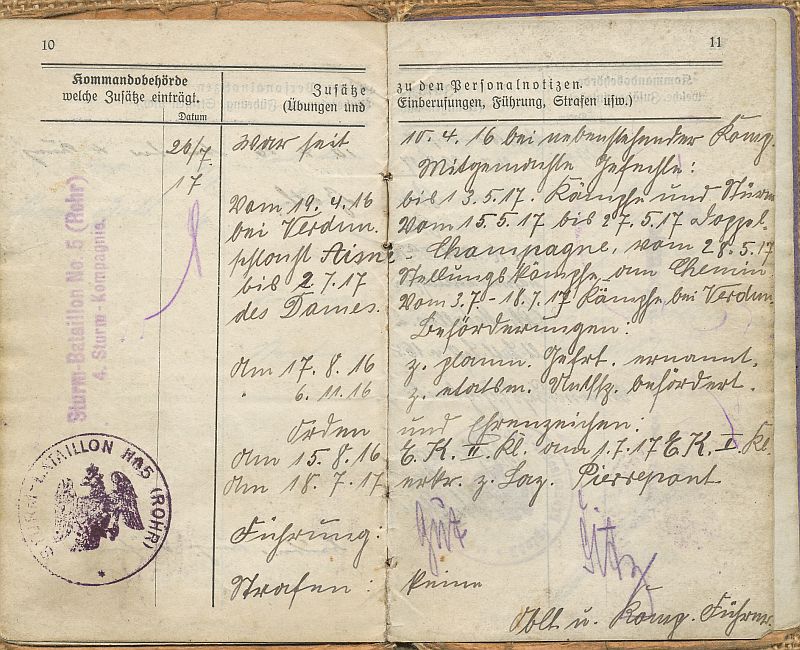 10
11
Kommandobehörde
welche Zusätze einträgt.
Datum
Zusätze zu den Personalnotizen.
(Übungen und Einberufungen, Führung, Strafen usw.)
26/7. 17
War seit 10. 4. 16 bei nebenstehender Komp.
Mitgemachte Gefechte:
Vom 19. 4. 16 bis 13.5.17. Kämpfe und Sturm
bei Verdun. Vom 15.5.17 bis 27.5.17 Doppel-
schlacht Aisne - Champagne, vom 28.5.17
bis 2.7.17 Stellungskämpfe am Chemin
des Dames. Vom 3.7 - 18.7.17 Kämpfe bei Verdun.
Beförderungen:
Am 17. 8. 16 z. planm. Gefrt. ernannt.
" 6. 11. 16 z. etatsm. Utffz. befördert.
Orden und Ehrenzeichen:
Am 15. 8. 16 E. K. II. Kl. am 1.7.17 E. K. I. Kl.
Am 18. 7. 17 erkr. z. Laz. Pierrepont
Führung: gut
Strafen: keine
Oblt. u. Komp. Führer.
Sturm-Bataillon No. 5 (Rohr)
4. Sturm-Kompagnie.
STURM-BATAILLON No. 5 (ROHR)